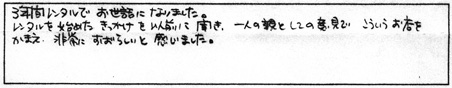 3年間レンタルで お世話に なりました。
レンタルを始めた きっかけを 以前に 聞き、一人の親としての意見で こういうお店を
かまえ、非常に すばらしいと 感じました。